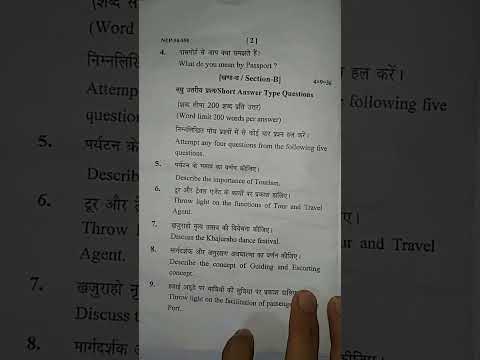 NEP-56496
[ 2 ]
4. पासपोर्ट से आप क्या समझते हैं?
What do you mean by Passport ?
[खण्ड-ब / Section-B]
4×9=36
लघु उत्तरीय प्रश्न/Short Answer Type Questions
(शब्द सीमा 200 शब्द प्रति उत्तर)
(Word limit 200 words per answer)
निम्नलिखित पाँच प्रश्नों में से कोई चार प्रश्न हल करें।
Attempt any four questions from the following five
questions.
5. पर्यटन के महत्व का वर्णन कीजिए।
Describe the importance of Tourism.
6. टूर और ट्रेवल एजेंट के कार्यों पर प्रकाश डालिए।
Throw light on the functions of Tour and Travel
Agent.
7. खजुराहो नृत्य उत्सव की विवेचना कीजिए।
Discuss the Khajuraho dance festival.
8. मार्गदर्शक और अनुरक्षण अवधारणा का वर्णन कीजिए।
Describe the concept of Guiding and Escorting
concept.
9. हवाई अड्डे पर यात्रियों की सुविधा पर प्रकाश डालिए
Throw light on the facilitation of passenge
Port.